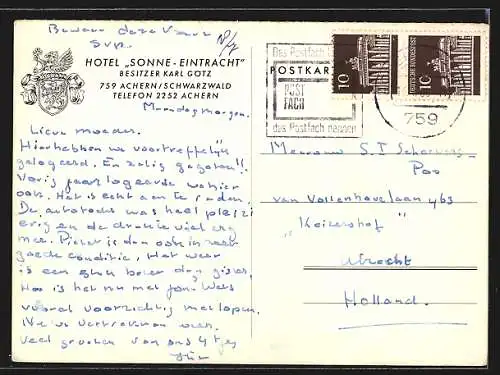 Bewaar deze kaart
svp.
HOTEL „SONNE - EINTRACHT"
BESITZER KARL GÖTZ
759 ACHERN/SCHWARZWALD
TELEFON 2252 ACHERN
Maandagmorgen.
Lieve moeder.
Hier hebben we voortreffelijk
gelogeerd. En zalig gegeten!!
Vorig jaar logeerde we hier
ook. Het is echt aan te raden.
De autotocht was heel plezi
erig en de drukte viel erg
mee. Pieter is dan ook in zeer
goede conditie. Het weer
is een stuk beter dan gister.
Hoe is het nu met jou? Wees
vooral voorzichtig met lopen.
Nu we vertrekken weer.
Veel groeten van ons 4tjes
Das Postfach
POSTKAR
POST
FACH
das Postfach nennen
10
DEUTSCHE BUNDESPOST
10
759
Mevrouw S. T.
Pos
van Vollenhovelaan 463
„Keizershof"
Utrecht
Holland.